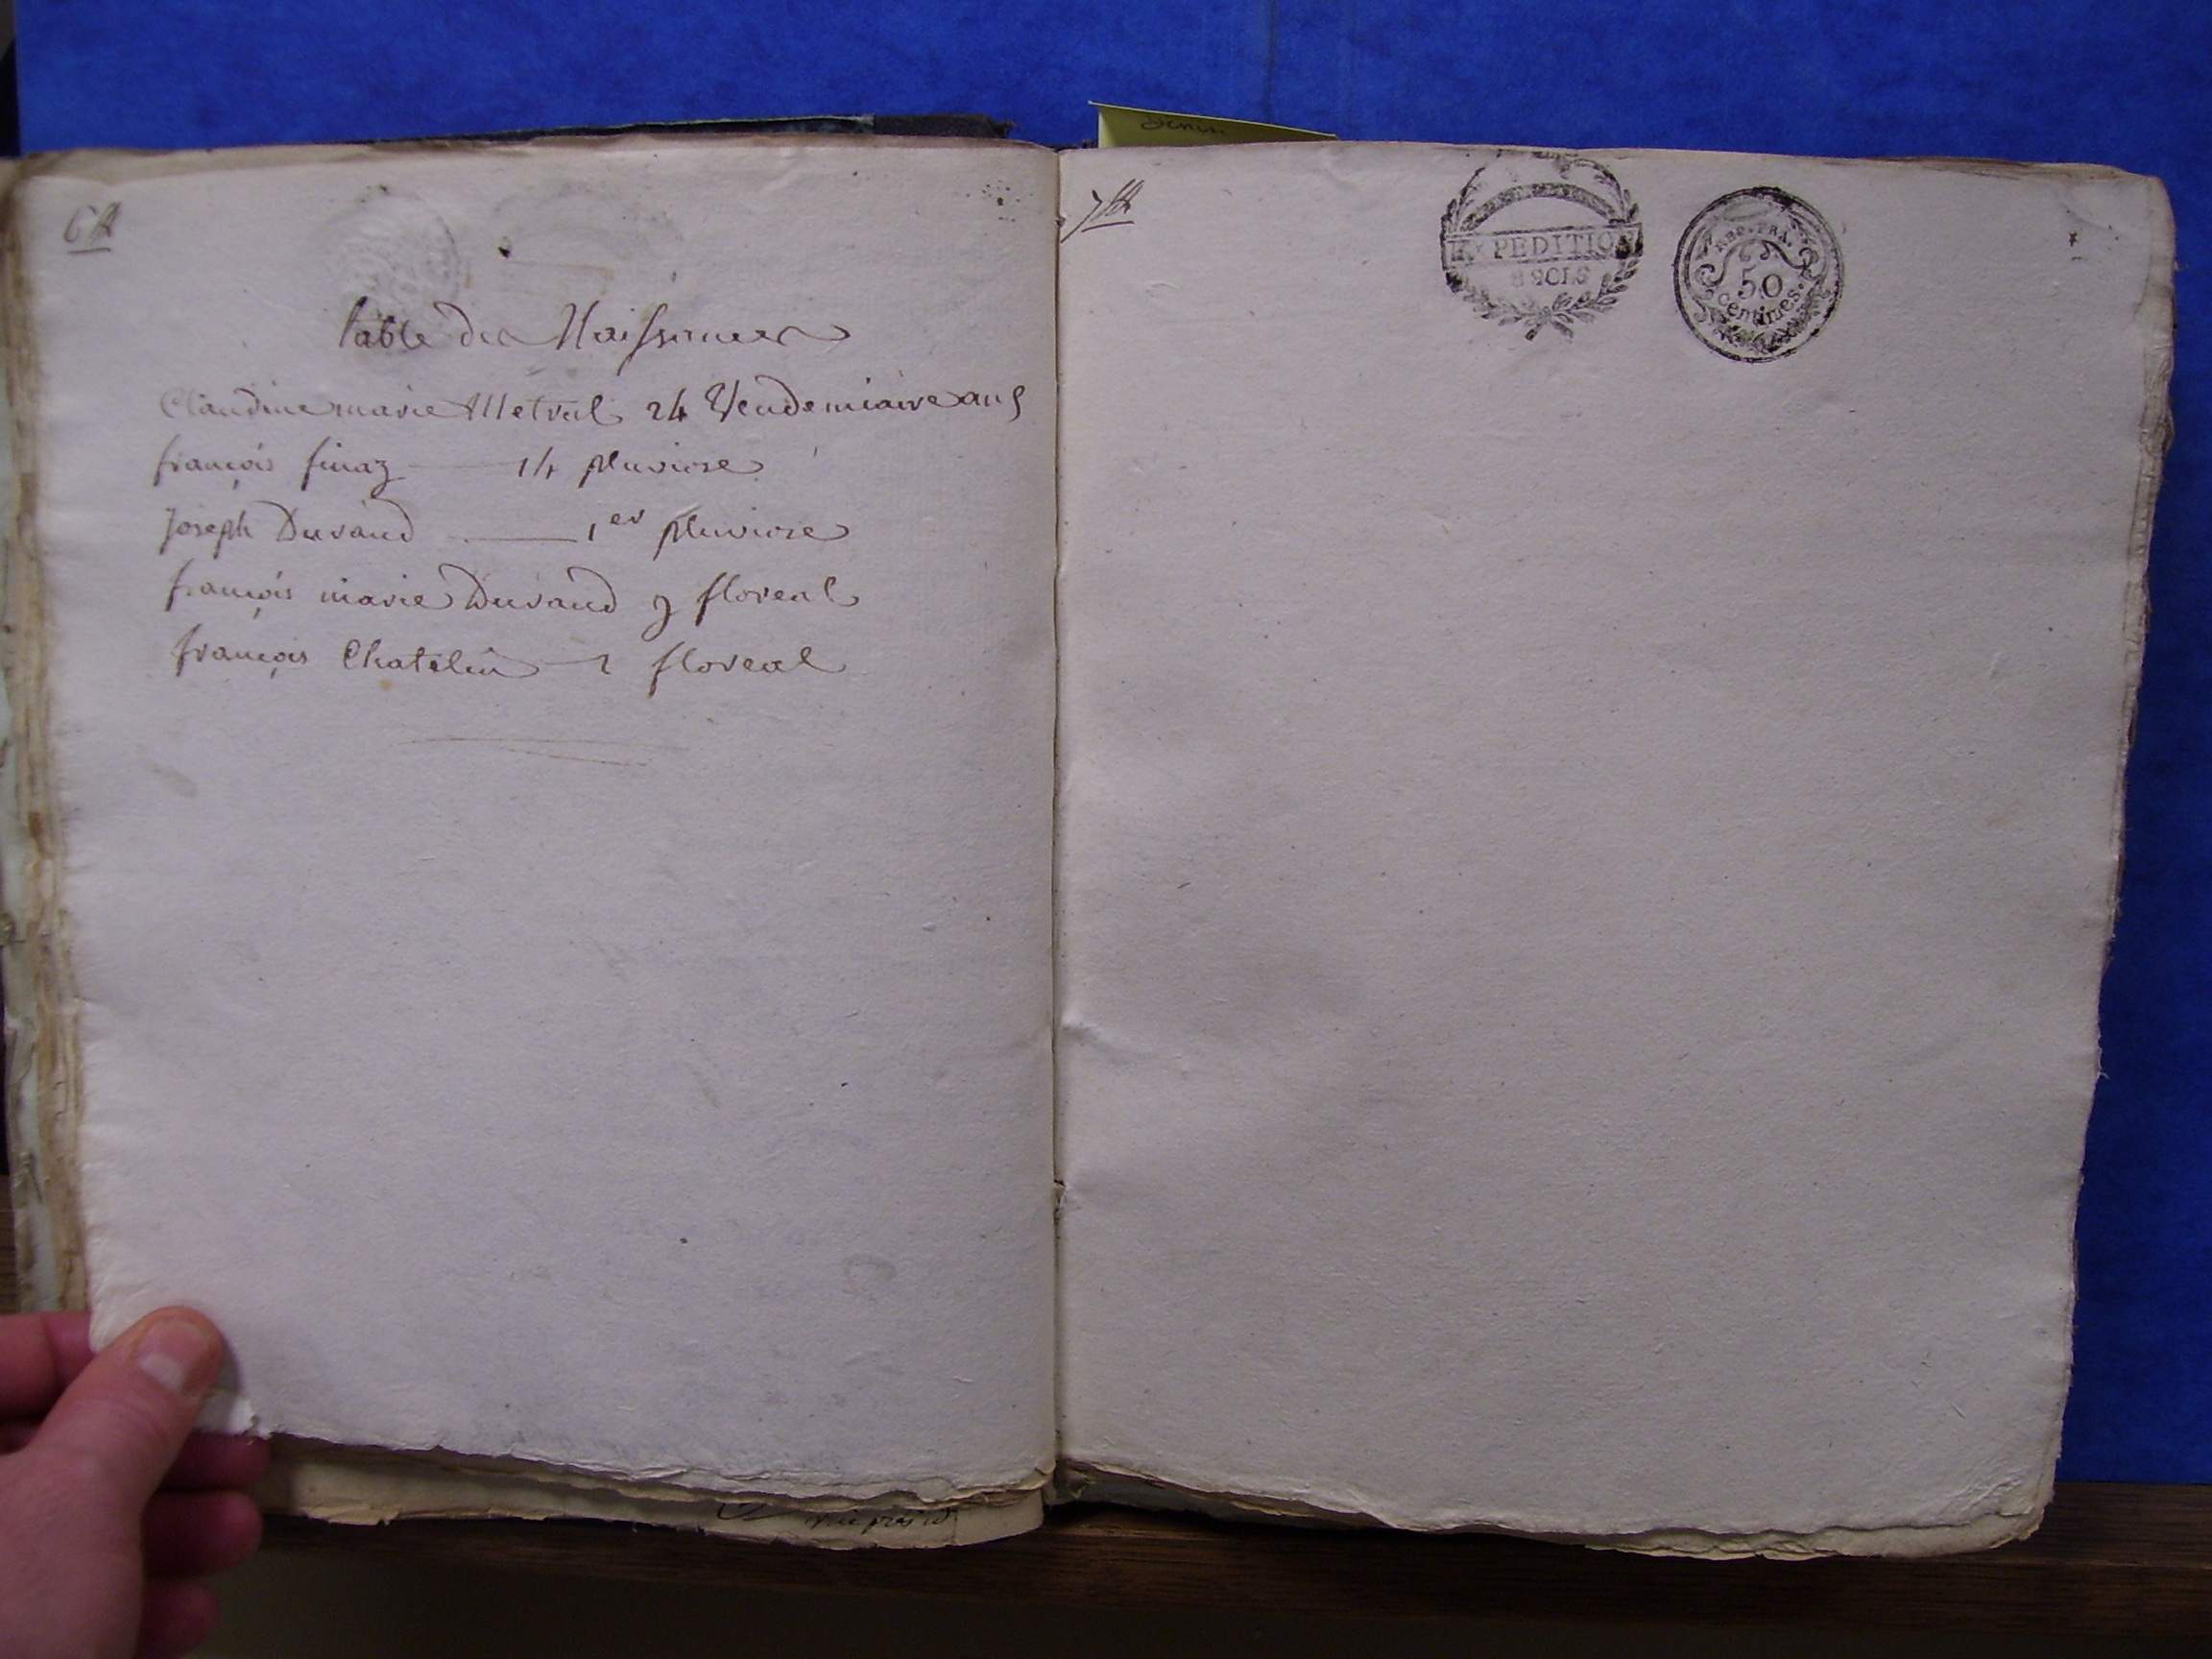 table des Naissances
Claudine marie Metral 24 Vendemiaire an 5
françois finaz 14 pluviose
Joseph Durand 1er pluviose
françois marie Durand 9 floreal
françois Chatelin 2 floreal
EXPEDITION
8 SOLS
REP. FRA.
50
centimes.